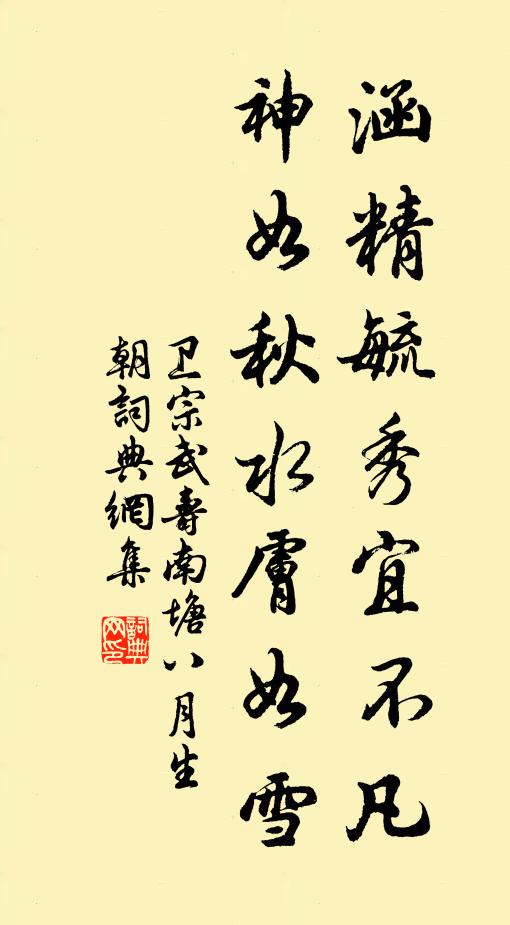 涵精毓秀宜不凡
神如秋水膚如雪
卫宗武壽南塘八月生
朝詞典網集
詞典网印